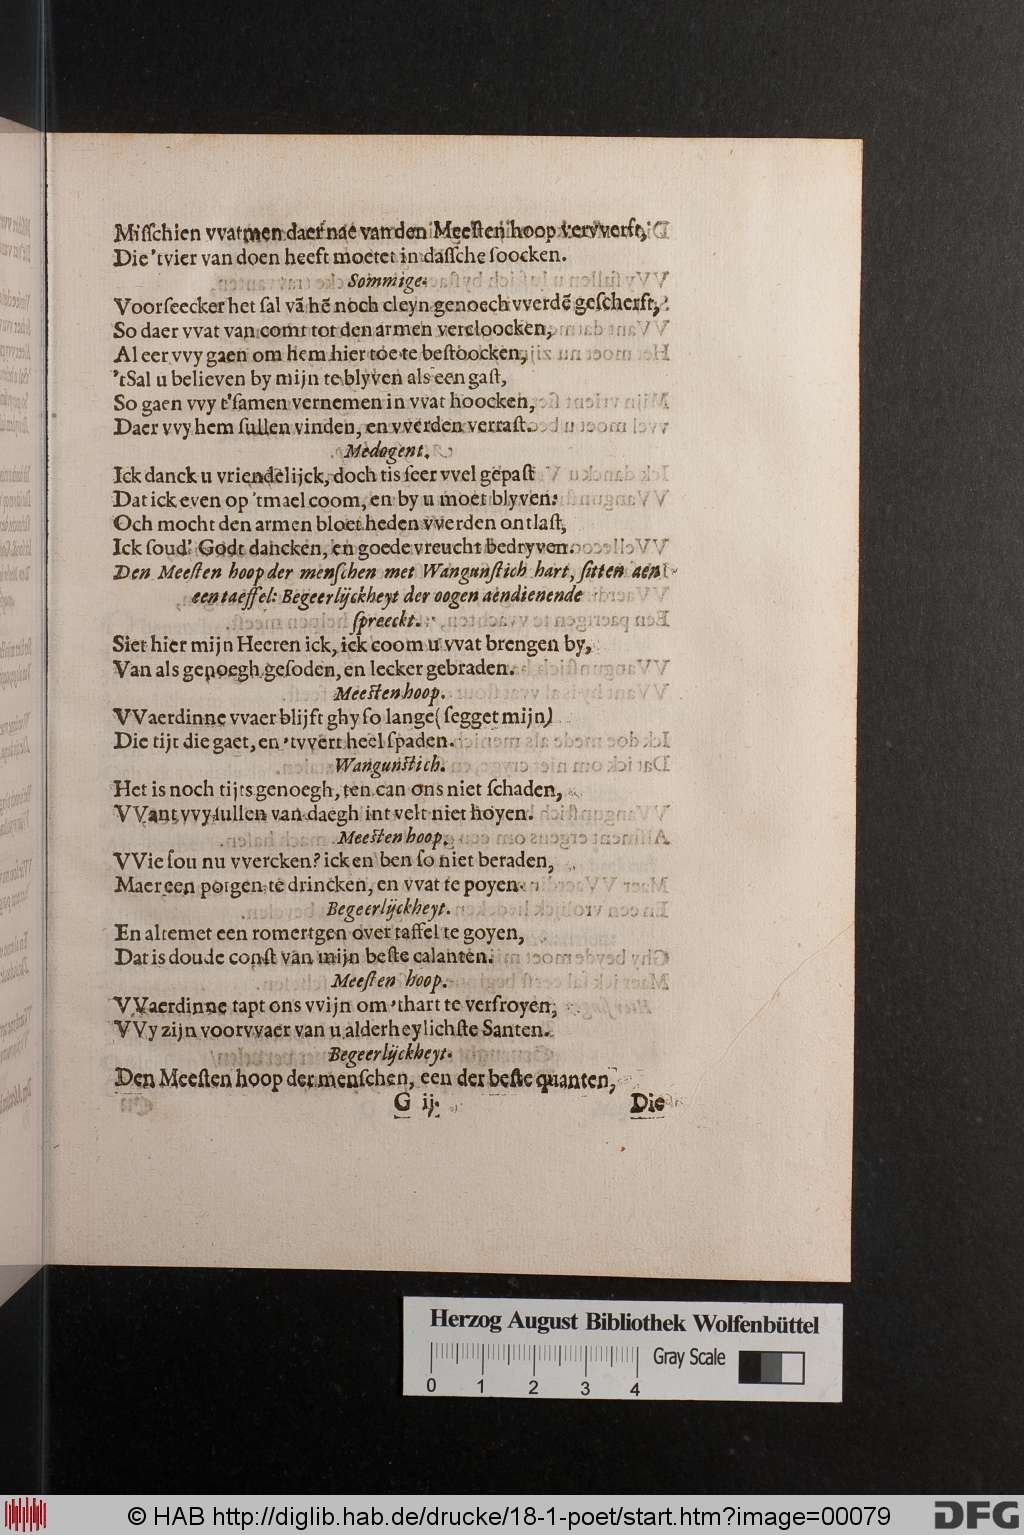 Misſchien vvatmen daer nae van den Meeſten hoop vervverſt,
Die 'tvier van doen heeft moetet in dasſche ſoocken.
Sommige.
Voorſeecker het ſal vā hē noch cleyn genoech vverdē geſcherſt,
So daer vvat van comt tot den armen vercloocken,
Al eer vvy gaen om hem hier toe te beſtoocken,
'tSal u believen by mijn te blyven als een gaſt,
So gaen vvy t'ſamen vernemen in vvat hoocken,
Daer vvy hem ſullen vinden, en vverden verraſt.
Medogent.
Ick danck u vriendelijck, doch tis ſeer vvel gepaſt
Dat ick even op 'tmael coom, en by u moet blyven:
Och mocht den armen bloet heden vverden ontlaſt,
Ick ſoud' Godt dancken, en goede vreucht bedryven.
Den Meeſten hoop der menſchen met Wangunſtich hart, ſitten aen
een taeffel: Begeerlijckheyt der oogen aendienende
ſpreeckt.
Siet hier mijn Heeren ick, ick coom u vvat brengen by,
Van als genoegh geſoden, en lecker gebraden.
Meeſten hoop.
VVaerdinne vvaer blijft ghy ſo lange (ſegget mijn)
Die tijt die gaet, en 'tvvert heel ſpaden.
Wangunſtich.
Het is noch tijts genoegh, ten can ons niet ſchaden,
VVant vvy ſullen van daegh int velt niet hoyen.
Meeſten hoop.
VVie ſou nu vvercken? ick en ben ſo niet beraden,
Maer een potgen te drincken, en vvat te poyen.
Begeerlijckheyt.
En altemet een romertgen over taffel te goyen,
Dat is doude conſt van mijn beſte calanten.
Meeſten hoop.
VVaerdinne tapt ons vvijn om 'thart te verfroyen,
VVy zijn voorvvaer van u alderheylichſte Santen.
Begeerlijckheyt.
Den Meeſten hoop der menſchen, een der beſte quanten,
G ij. Die
Herzog August Bibliothek Wolfenbüttel
Gray Scale
0 1 2 3 4
© HAB http://diglib.hab.de/drucke/18-1-poet/start.htm?image=00079
DFG